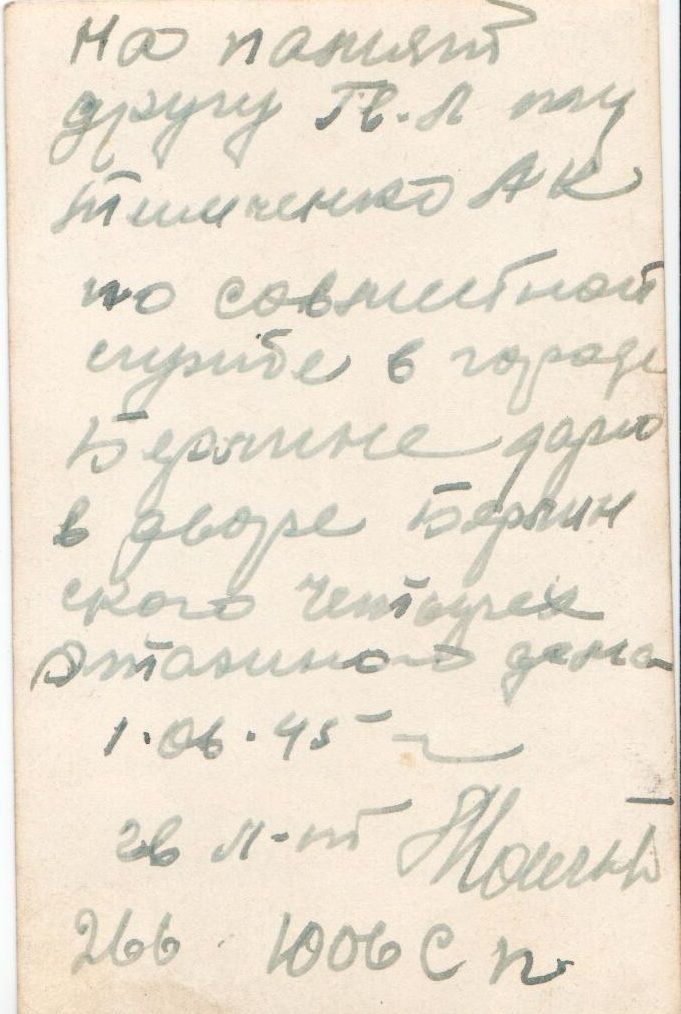 На память
другу Гв. Л-ту
Тимченко АК
по совмистной
службе в городе
Берлине дарю
в дворе Берлин
ского четырех
этажного дома
1.06.45
гв л-нт
266 1006 С п